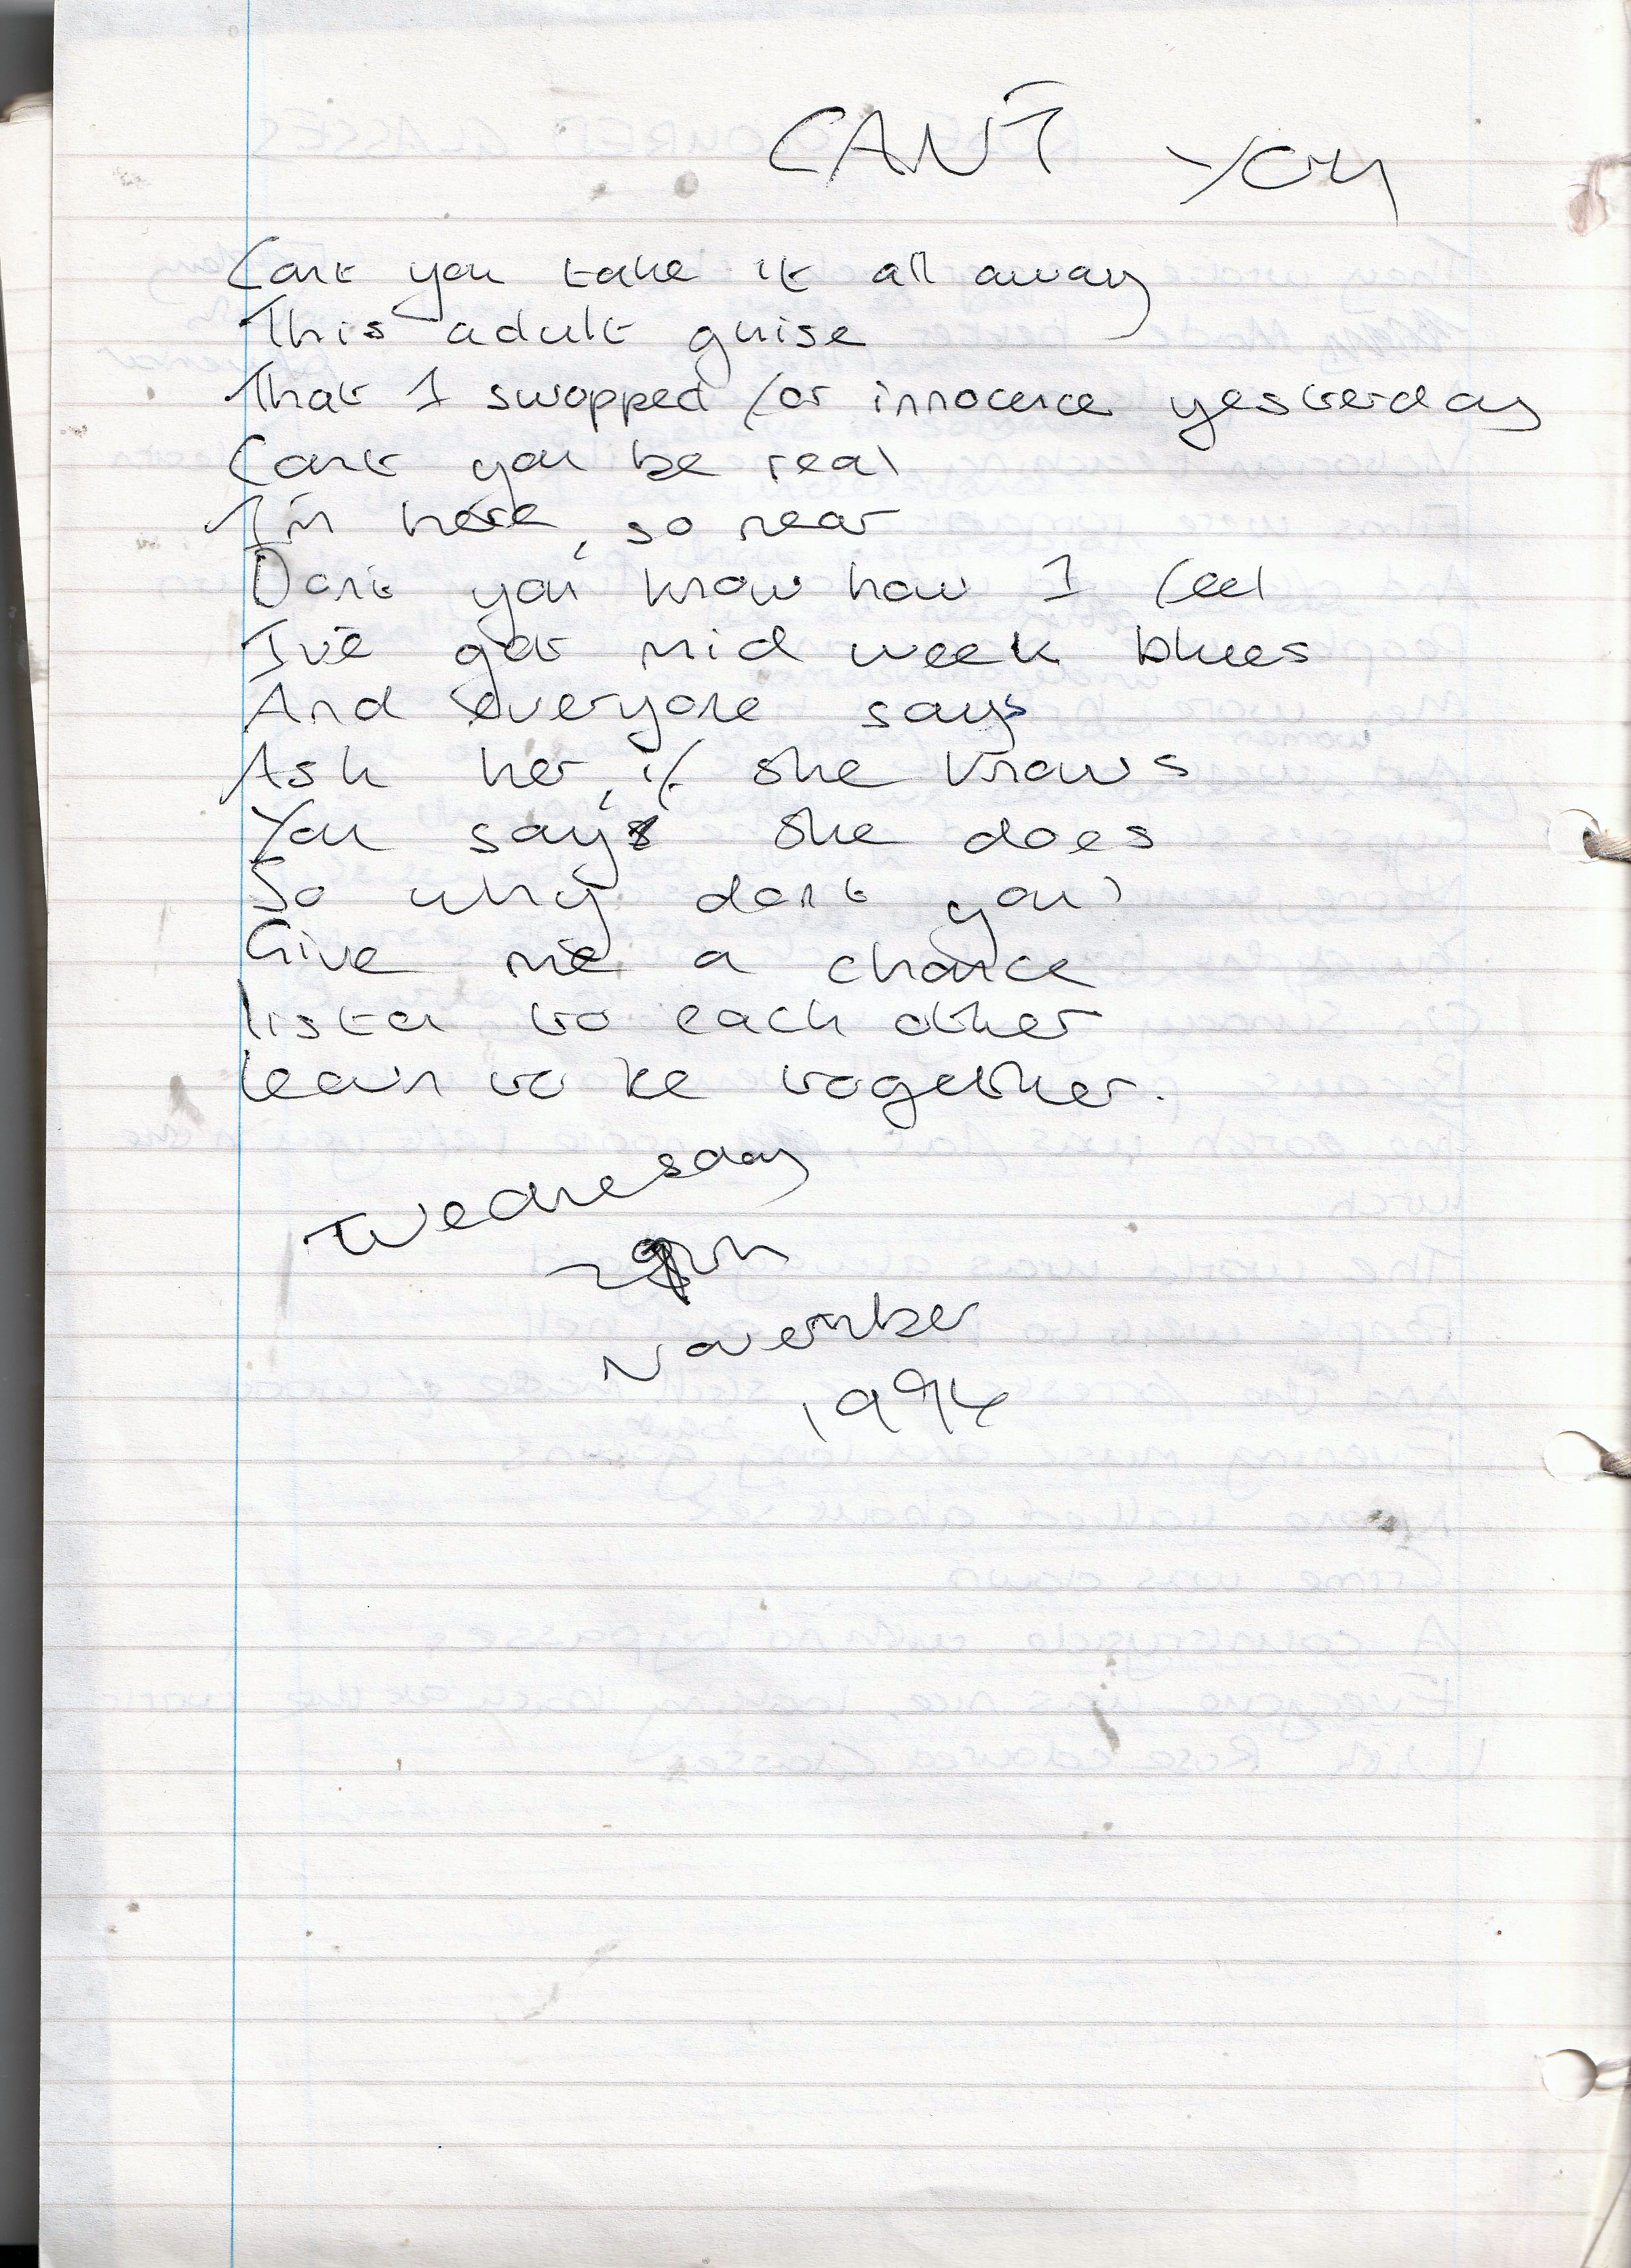 CAN'T YOU
Cant you take it all away
This adult guise
That I swopped for innocence yesterday
Cant you be real
I'm here, so near
Dont you know how I feel
I've got mid week blues
And everyone says
Ask her, if she knows
You say she does
So why dont you?
Give me a chance
listen to each other
learn to be together.
Wednesday
November
1994